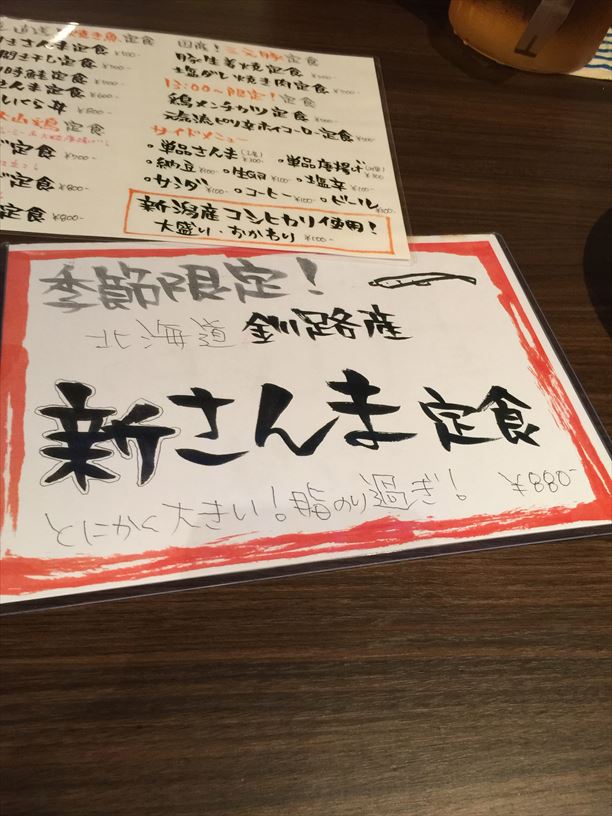 焼き魚定食
さんま定食 ¥700-
開き干し定食 ¥700-
時鮭定食 ¥700-
さんま定食 ¥600-
いくら丼 ¥800-
鶏定食
定食 ¥700-
定食 ¥800-
国産！三元豚定食
豚生姜焼定食 ¥700-
塩ダレ焼き肉定食 ¥700-
13:00〜限定！定食
鶏メンチカツ定食 ¥500-
ピリ辛ホイコーロー定食 ¥500-
サイドメニュー
・単品さんま ・単品唐揚げ
・納豆 ¥100 ・生卵 ¥100 ・塩辛 ¥100-
・サラダ ¥100 ・コーヒー ¥100- ・ビール
新潟産コシヒカリ使用！
大盛り・おかわり ¥100-
季節限定！
北海道 釧路産
新さんま定食
とにかく大きい！脂のり過ぎ！ ¥880-